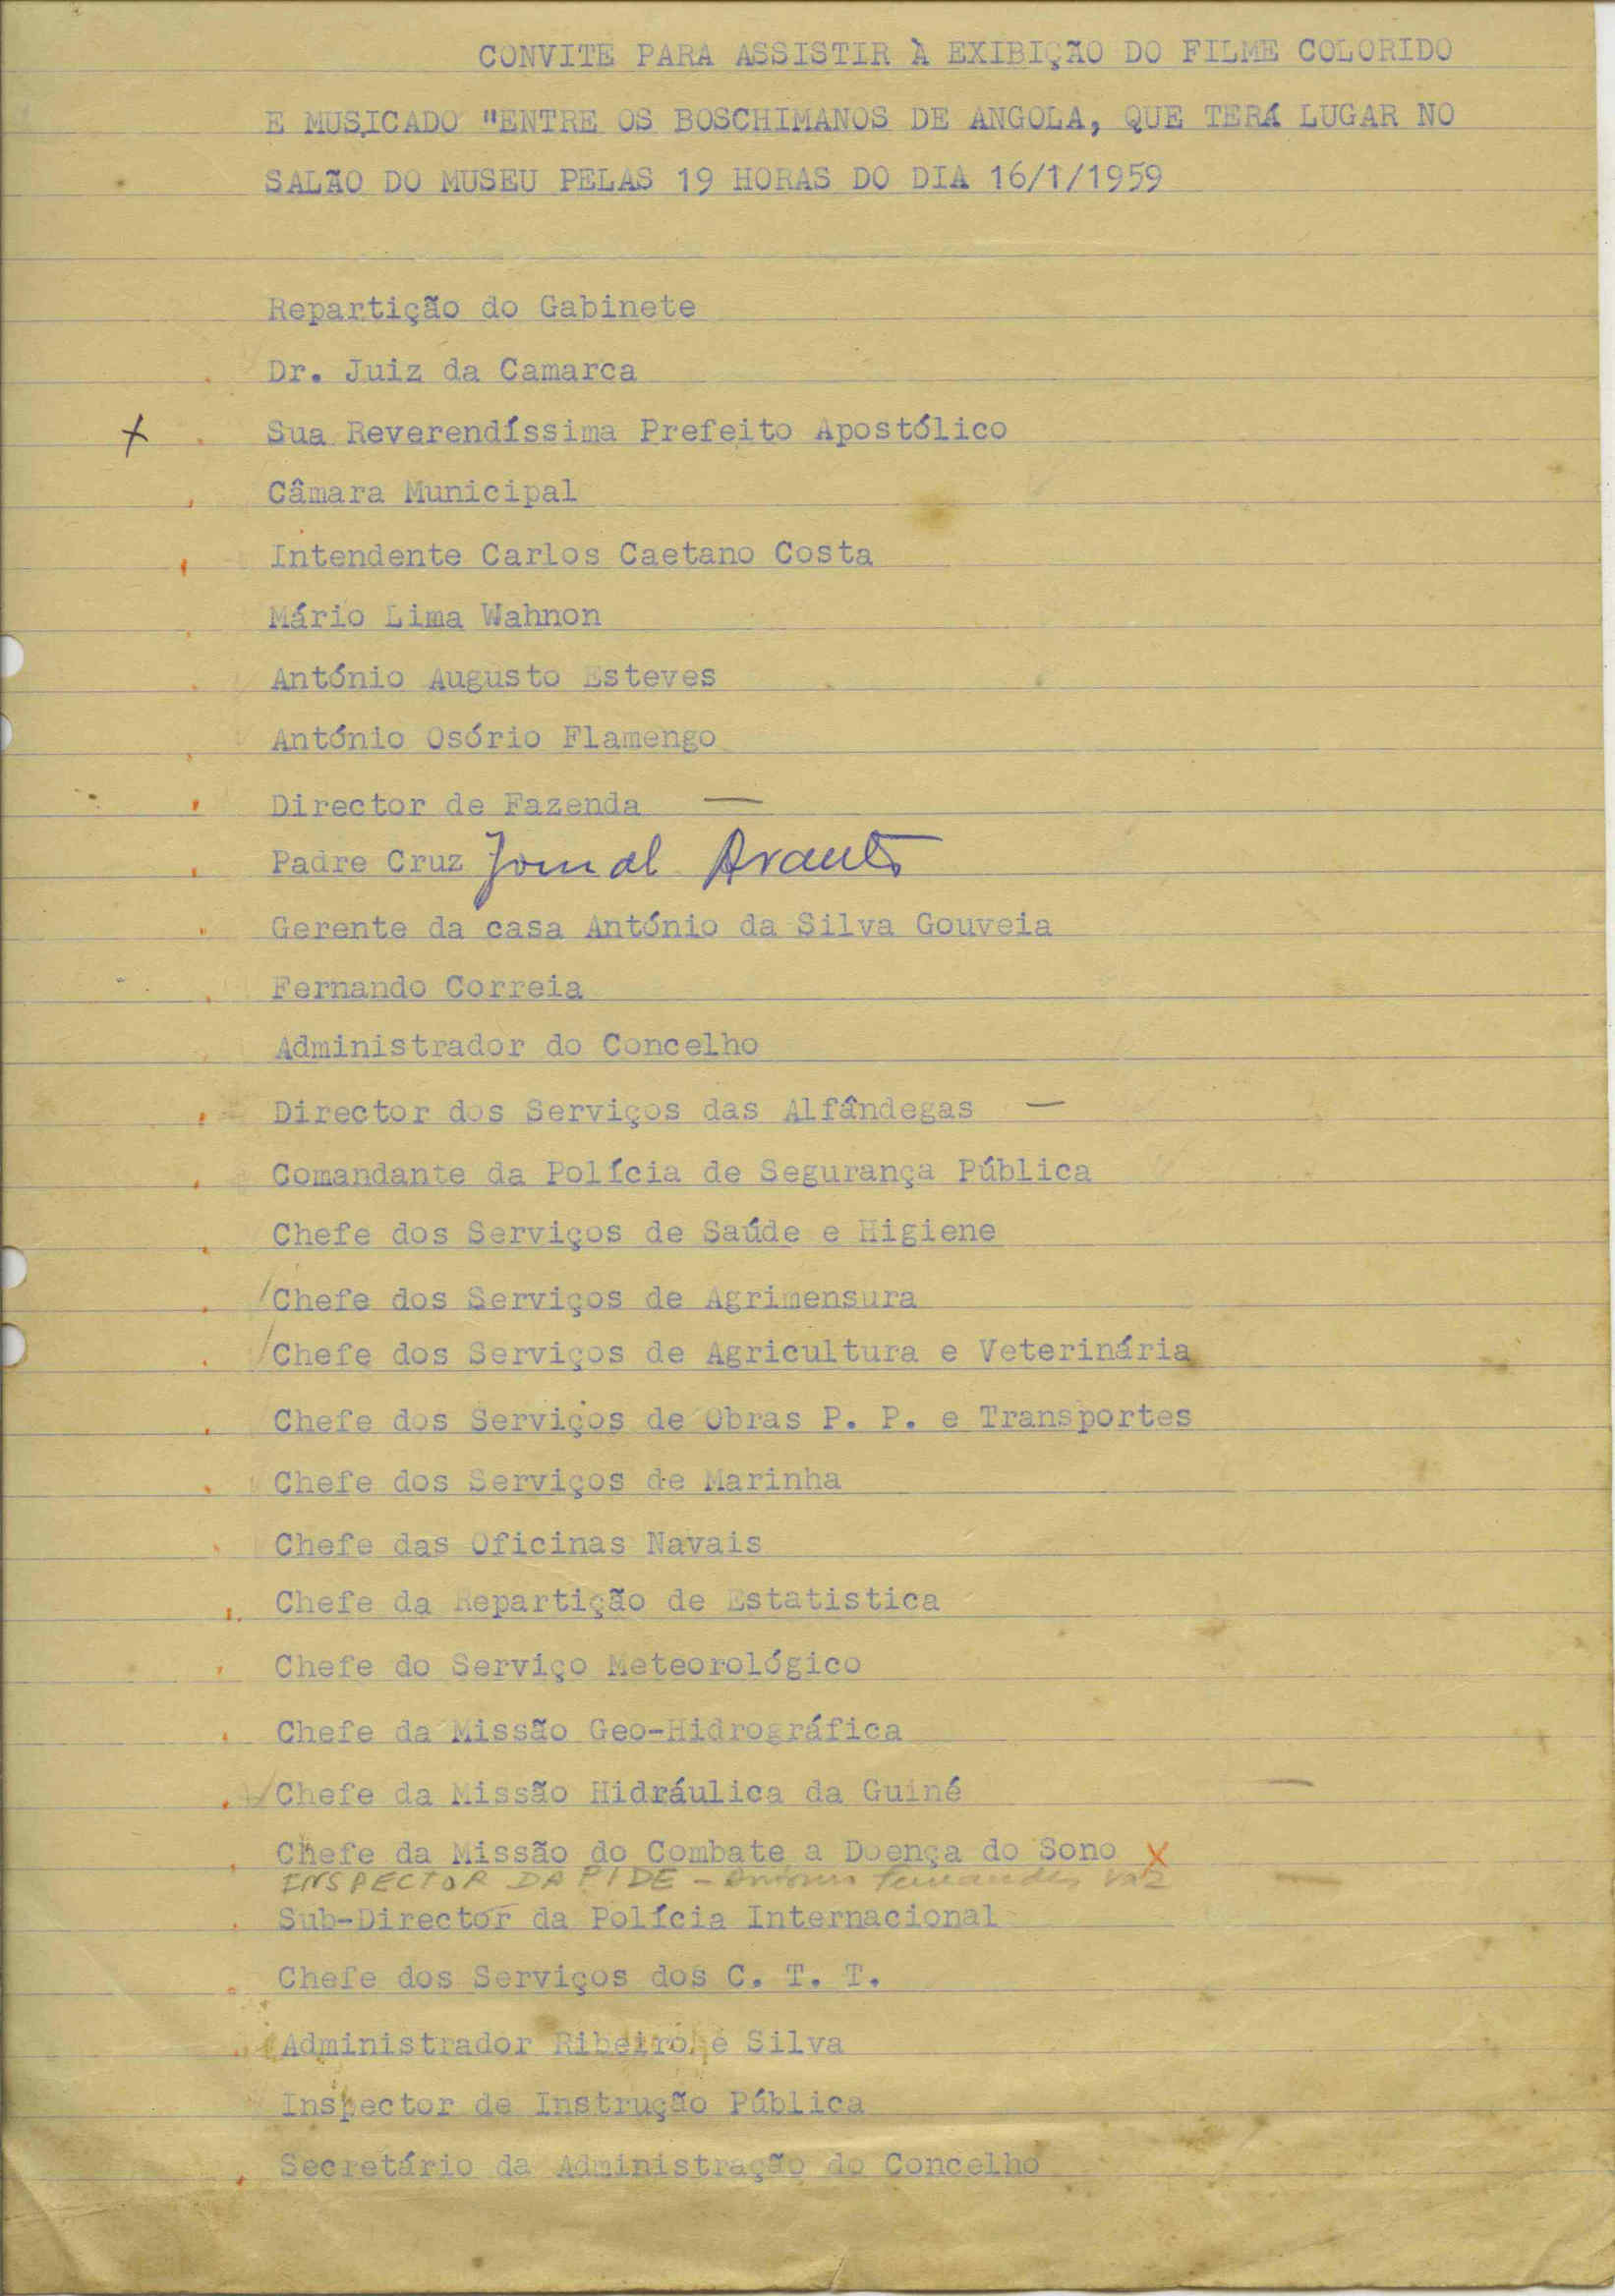 CONVITE PARA ASSISTIR À EXIBIÇÃO DO FILME COLORIDO
E MUSICADO "ENTRE OS BOSCHIMANOS DE ANGOLA, QUE TERÁ LUGAR NO
SALÃO DO MUSEU PELAS 19 HORAS DO DIA 16/1/1959
Repartição do Gabinete
Dr. Juiz da Camarca
Sua Reverendíssima Prefeito Apostólico
Câmara Municipal
Intendente Carlos Caetano Costa
Mário Lima Wahnon
António Augusto Esteves
António Osório Flamengo
Director de Fazenda —
Padre Cruz Jornal Arauto
Gerente da casa António da Silva Gouveia
Fernando Correia
Administrador do Concelho
Director dos Serviços das Alfândegas —
Comandante da Polícia de Segurança Pública
Chefe dos Serviços de Saúde e Higiene
Chefe dos Serviços de Agrimensura
Chefe dos Serviços de Agricultura e Veterinária
Chefe dos Serviços de Obras P. P. e Transportes
Chefe dos Serviços de Marinha
Chefe das Oficinas Navais
Chefe da Repartição de Estatistica
Chefe do Serviço Meteorológico
Chefe da Missão Geo-Hidrográfica
Chefe da Missão Hidráulica da Guiné —
Chefe da Missão do Combate a Doença do Sono X
INSPECTOR DA PIDE - António Fernandes Vaz
Sub-Director da Polícia Internacional
Chefe dos Serviços dos C. T. T.
Administrador Ribeiro e Silva
Inspector de Instrução Pública
Secretário da Administração do Concelho